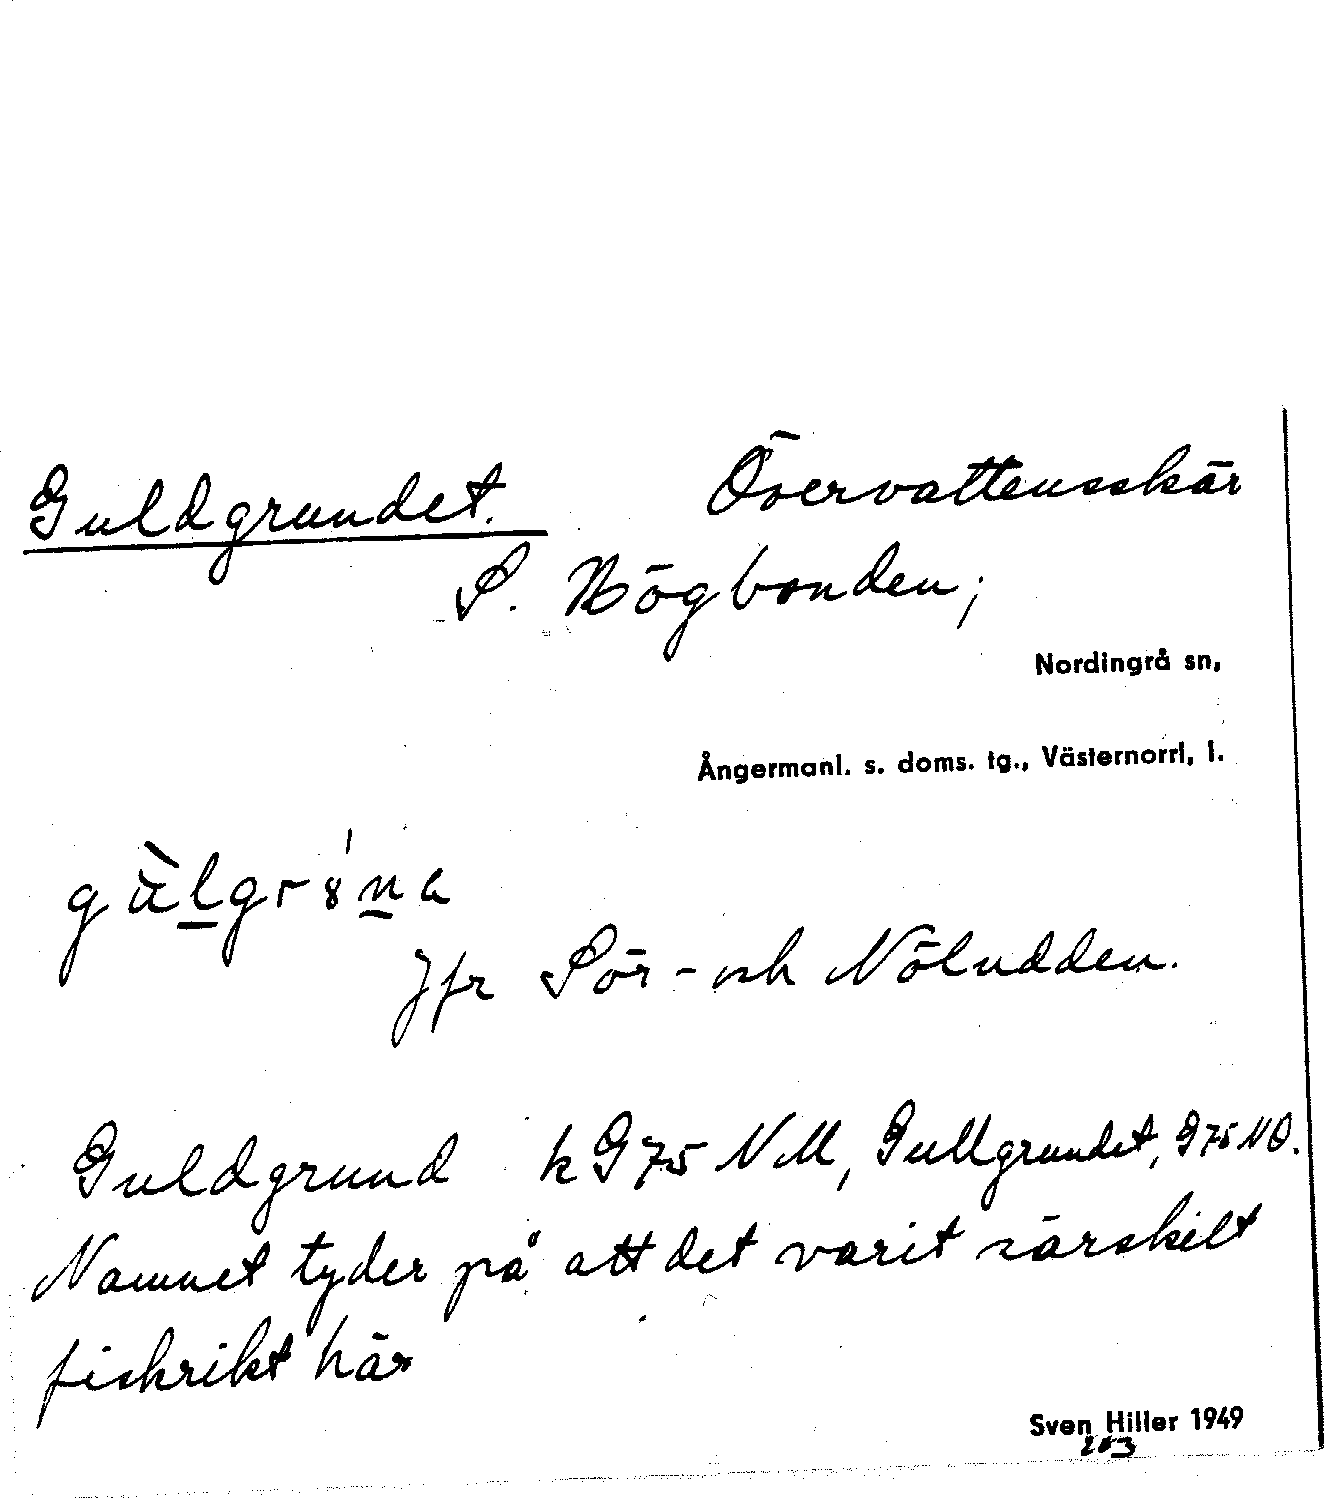 Guldgrundet. Övervattensskär
S. Högbonden;
Nordingrå sn,
Ångermanl. s. doms. tg., Västernorrl, l.
Jfr Sör- och Nöludden.
Guldgrund k G75 NM, Gullgrundet, G75 NO.
Namnet tyder på att det varit särskilt
fiskrikt här
Sven Hiller 1949
203